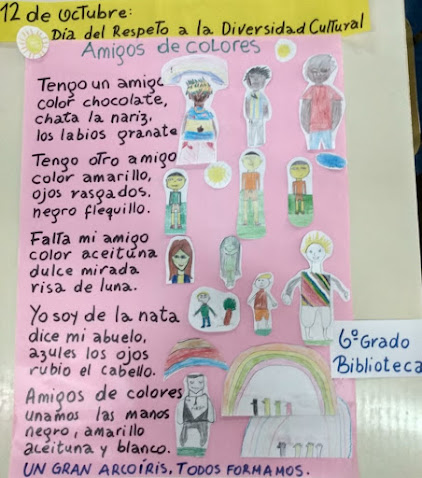 12 de Octubre:
Día del Respeto a la Diversidad Cultural
Amigos de colores
Tengo un amigo
color chocolate,
chata la nariz,
los labios granate
Tengo otro amigo
color amarillo,
ojos rasgados.
negro flequillo.
Falta mi amigo
color aceituna
dulce mirada
risa de luna.
Yo soy de la nata
dice mi abuelo,
azules los ojos
rubio el cabello.
Amigos de colores
unamos las manos
negro, amarillo
aceituna y blanco.
UN GRAN ARCOÍRIS, TODOS FORMAMOS.
6º Grado
Biblioteca